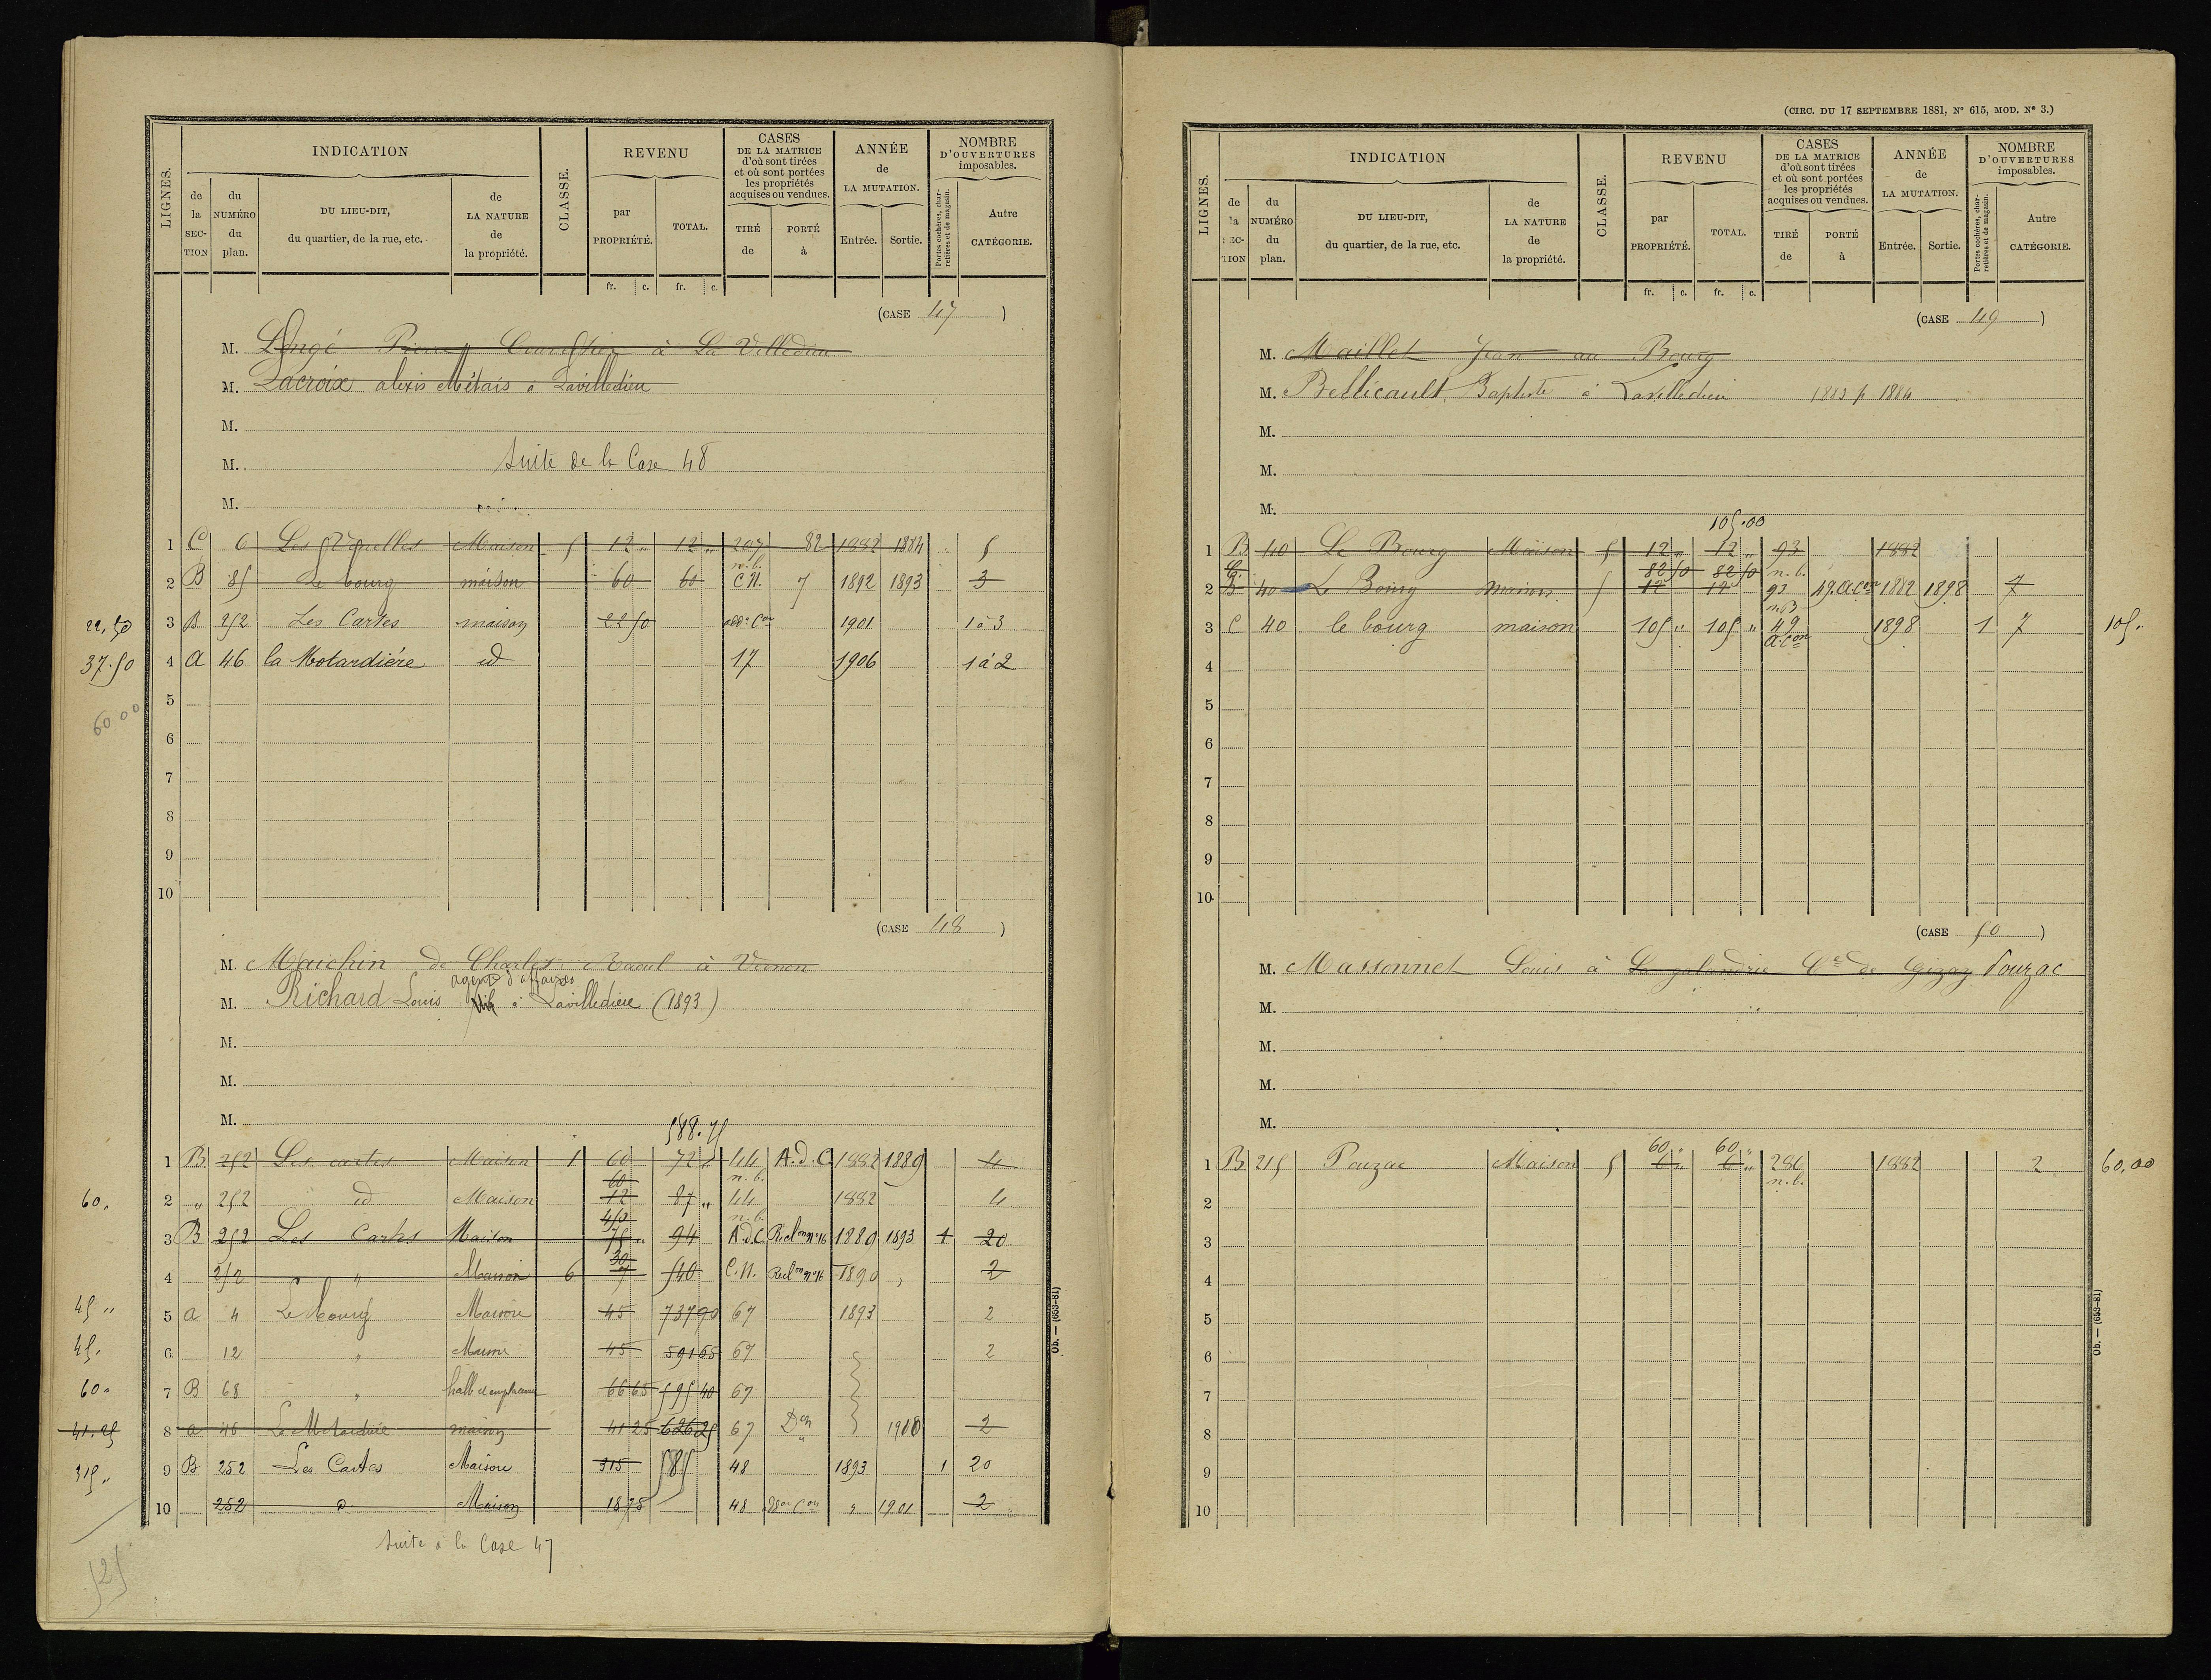 LIGNES.
INDICATION
de la SEC-TION
du NUMÉRO du plan.
DU LIEU-DIT, du quartier, de la rue, etc.
de LA NATURE de la propriété.
CLASSE.
REVENU
par PROPRIÉTÉ.
TOTAL.
fr. c. fr. c.
CASES DE LA MATRICE d'où sont tirées et où sont portées les propriétés acquises ou vendues.
TIRÉ de
PORTÉ à
ANNÉE de LA MUTATION.
Entrée. Sortie.
NOMBRE D'OUVERTURES imposables.
Portes cochères, charretières et de magasin.
Autre CATÉGORIE.
(CASE 47)
M. Longé Pierre à La Villedieu
M. Lacroix alexis Métais à Lavilledieu
M.
M. Suite de la Case 48
M.
1 C 6 Les Maison 5 12 " 12 " 207 82 1882 1884 5
2 B 85 Le bourg maison 60 60 n.b. C.N. 7 1892 1893 3
22,50 3 B 252 Les Cartes maison 22 50 add. Con 1901 1 à 3
37.50 4 A 46 la Motardière id 17 1906 1 à 2
60 00 5
6
7
8
9
10
(CASE 48)
M. Maichin de Charles Raoul à Vernon
agent d'affaires
M. Richard Louis à Lavilledieu (1893)
M.
M.
M.
588.75
1 B 252 Les cartes Maison 1 60 72 " 44 A.d.C. 1882 1889 4
60. 2 " 252 id Maison 60 12 87 " n.b. 44 1882 4
3 B 252 Les Cartes Maison 450 75 " 94 n.b. A.d.C. Reclon n°16 1889 1893 1 20
4 252 " Maison 6 30 7 540 C.N. Reclon n°16 1890 " 2
45 " 5 a 4 Le bourg Maison 45 737 90 67 1893 2
45. 6 12 " Maison 45 591 65 67 2
60 " 7 B 68 " halle et emplacement 66 65 595 40 67
41.25 8 a 46 La Motardière maison 41 25 626 25 67 Don 1900 2
315 " 9 B 252 Les Cartes Maison 315 585 48 1893 1 20
10 252 d° Maison 18 75 48 " 1901 2
Suite à la Case 47
525
Ob. — (653-81)
(CIRC. DU 17 SEPTEMBRE 1881, N° 615, MOD. N° 3.)
LIGNES.
INDICATION
de la SEC-TION
du NUMÉRO du plan.
DU LIEU-DIT, du quartier, de la rue, etc.
de LA NATURE de la propriété.
CLASSE.
REVENU
par PROPRIÉTÉ.
TOTAL.
fr. c. fr. c.
CASES DE LA MATRICE d'où sont tirées et où sont portées les propriétés acquises ou vendues.
TIRÉ de
PORTÉ à
ANNÉE de LA MUTATION.
Entrée. Sortie.
NOMBRE D'OUVERTURES imposables.
Portes cochères, charretières et de magasin.
Autre CATÉGORIE.
(CASE 49)
M. Maillet Jean au Bourg
M. Bellicault Baptiste à Lavilledieu 1883 p 1884
M.
M.
M.
105.00
1 B 40 Le Bourg Maison 5 12 " 12 " 93 1882
2 C. B 40 Le Bourg maison 5 82 50 12 82 50 12 n.b. 93 49 a.con 1882 1898 7
3 C 40 le bourg maison 105 " 105 " n.B 49 a.con 1898 1 7 105 "
4
5
6
7
8
9
10
(CASE 50)
M. Massonnet Louis à La galandrie Cne de Gizay Pouzac
M.
M.
M.
M.
1 B 215 Pouzac Maison 5 60 " 6 " 60 " 6 " 286 n.b. 1882 2 60,00
2
3
4
5
6
7
8
9
10
Ob. — (653-81)